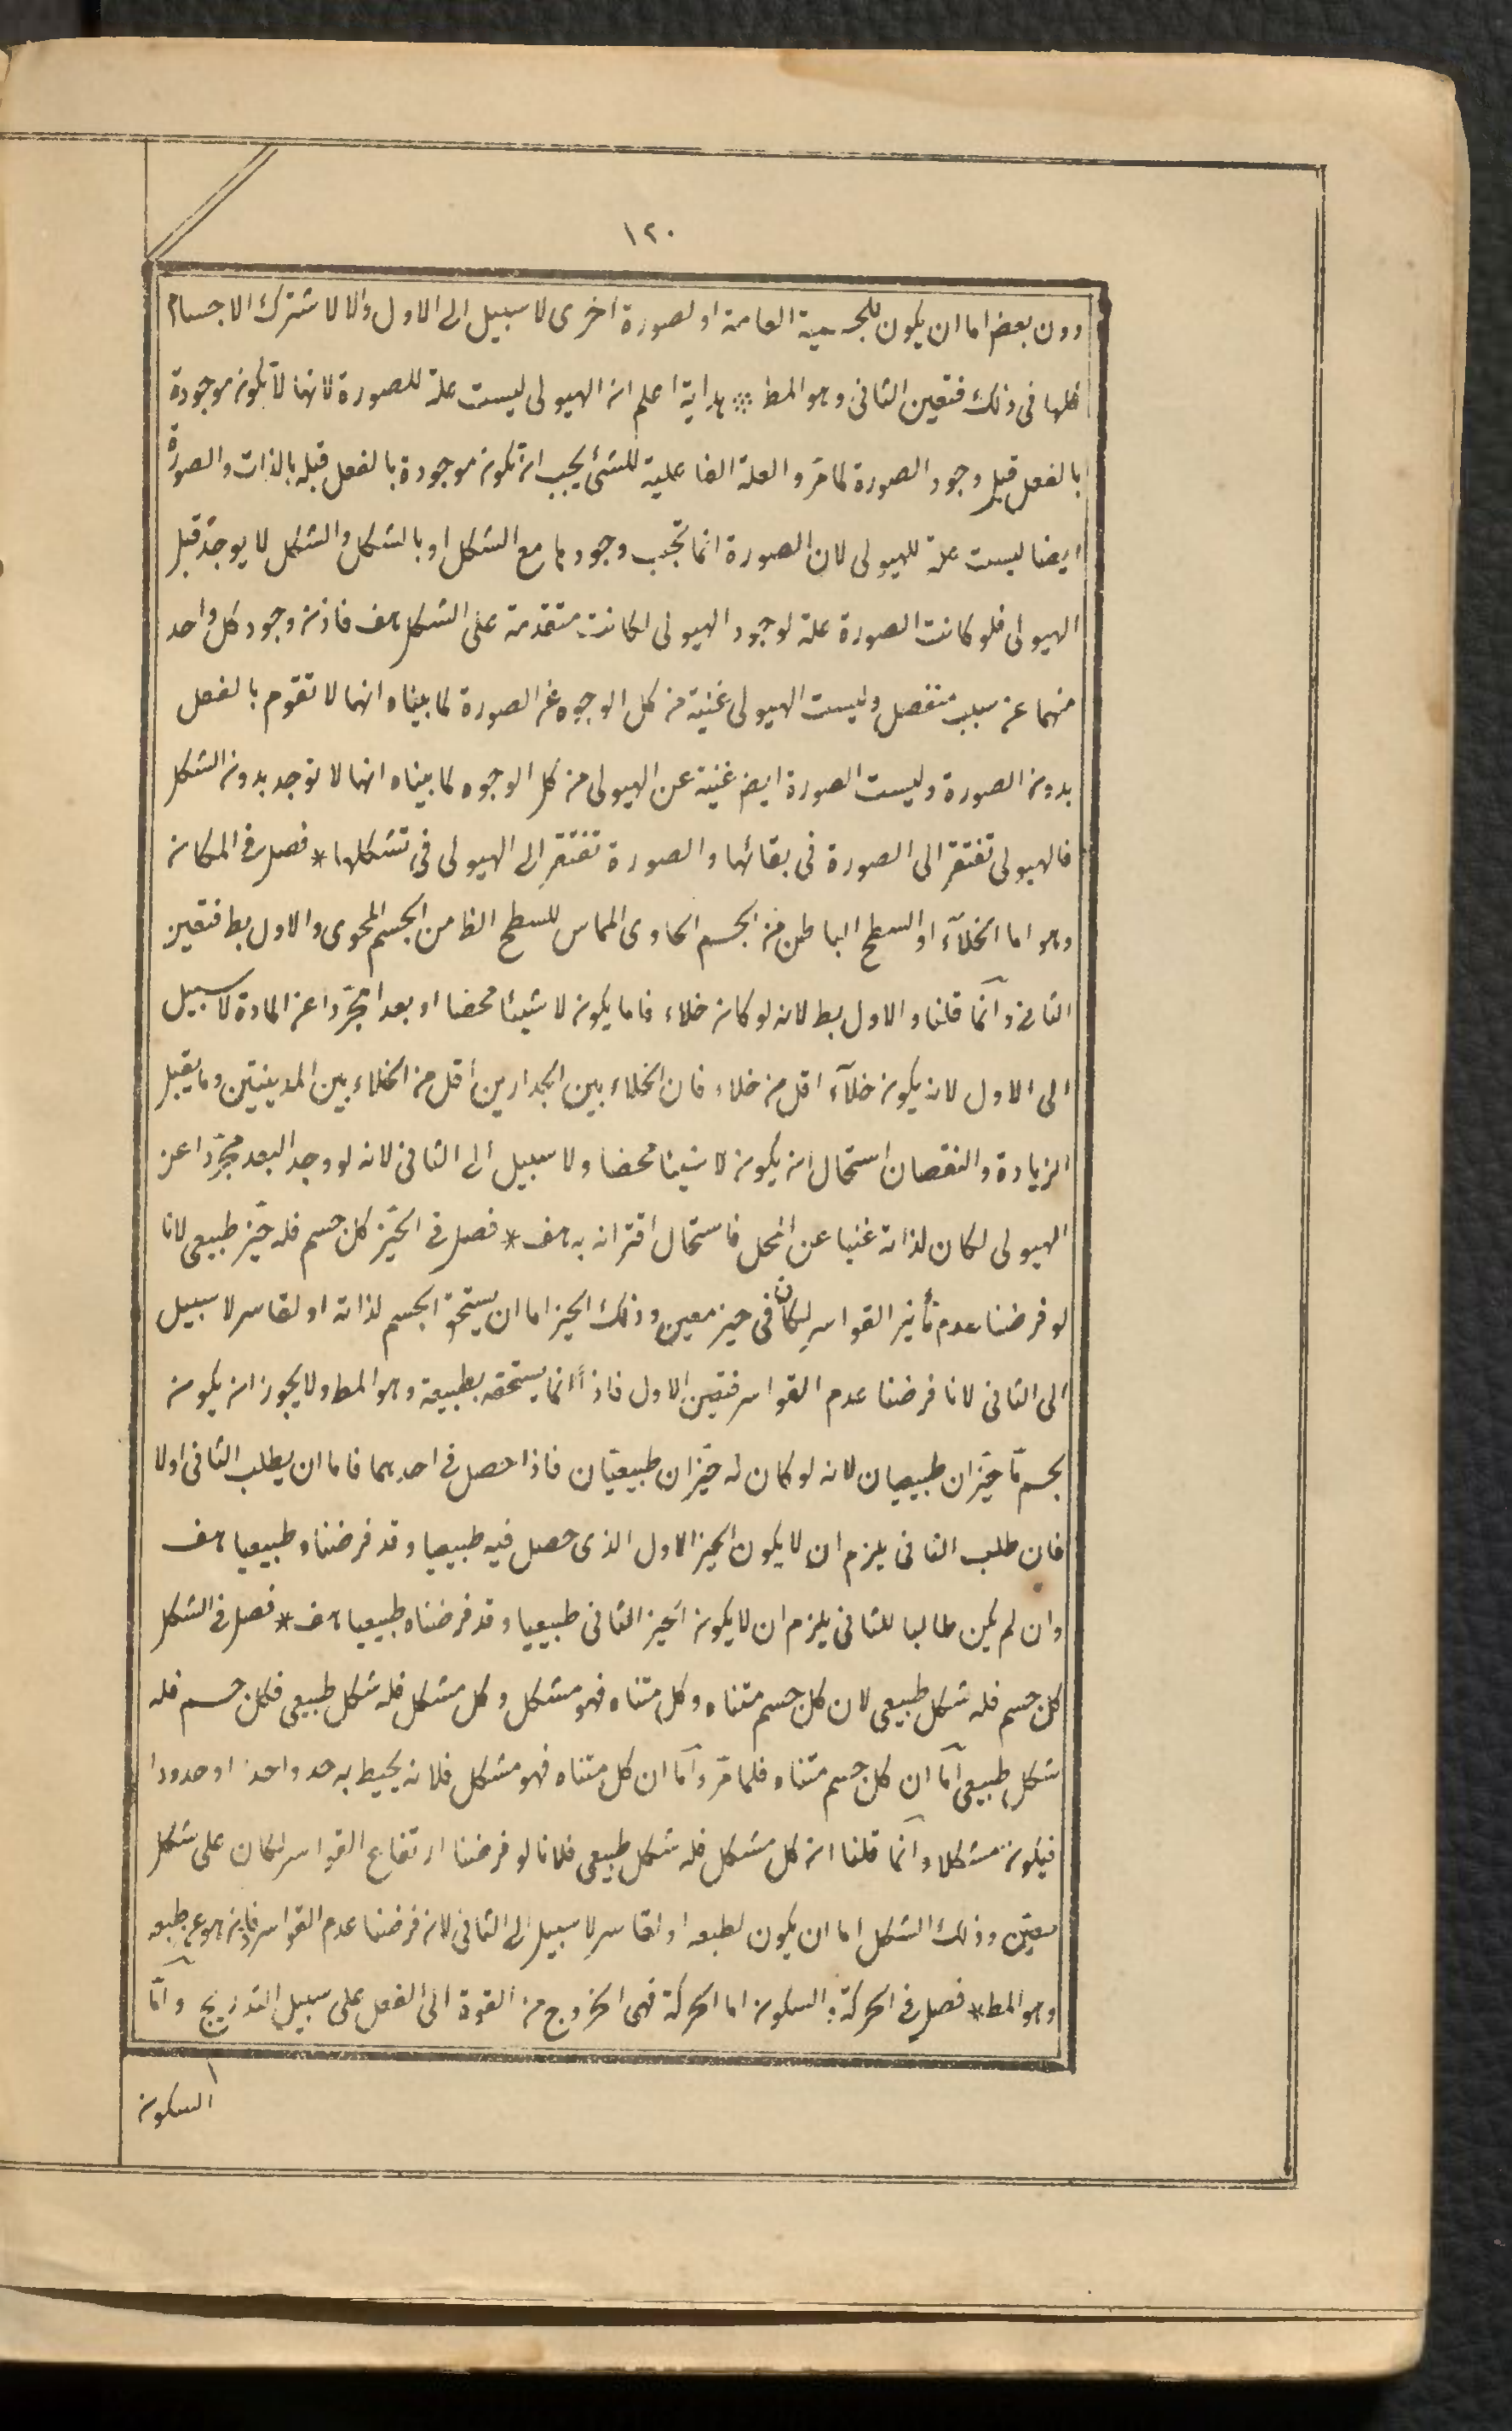 ١٢٠
دون بعض اما ان يكون للجسمية العامة او لصورة اخرى لا سبيل الى الاول والا لاشترك الاجسام
كلها فى ذلك فتعين الثانى وهو المط ⁘ هداية اعلم ان الهيولى ليست علة للصورة لانها لا تكون موجودة
بالفعل قبل وجود الصورة لما مرّ والعلة الفاعلية للشئ يجب ان تكون موجودة بالفعل قبله بالذات والصورة
ايضا ليست علة للهيولى لان الصورة انما تجب وجودها مع الشكل او بالشكل والشكل لا يوجد قبل
الهيولى فلو كانت الصورة علة لوجود الهيولى لكانت متقدمة على الشكل هف فاذن وجود كل واحد
منهما عن سبب منفصل وليست الهيولى غنية من كل الوجوه عن الصورة لما بينا انها لا تقوم بالفعل
بدون الصورة وليست الصورة ايضا غنية عن الهيولى من كل الوجوه لما بيناه انها لا توجد بدون الشكل
فالهيولى تفتقر الى الصورة فى بقائها والصورة تفتقر الى الهيولى فى تشكلها * فصل فى المكان
وهو اما الخلآء او السطح الباطن من الجسم الحاوى المماس للسطح الظا من الجسم المحوى والاول بط فتعين
الثانى وانّما قلنا والاول بط لانه لو كان خلاء فاما يكون لا شيئا محضا او بعدا مجرّدا عن المادة لا سبيل
الى الاول لانه يكون خلآء اقل من خلاء فان الخلاء بين الجدارين اقل من الخلاء بين المدينتين وما يقبل
الزيادة والنقصان استحال ان يكون لا شيئا محضا ولا سبيل الى الثانى لانه لو وجد البعد مجرّدا عن
الهيولى لكان لذاته غنيا عن المحل فاستحال اقترانه به هف * فصل فى الحيّز كل جسم فله حيّز طبيعى لانا
لو فرضنا عدم تأثير القواسر لكان فى حيز معين وذلك الحيز اما ان يستحق الجسم لذاته او لقاسر لا سبيل
الى الثانى لانا فرضنا عدم القواسر فتعين الاول فاذاً انما يستحقه بطبيعة وهو المط ولا يجوز ان يكون
لجسم مّا حيّزان طبيعيان لانه لو كان له حيّزان طبيعيّان فاذا حصل فى احدهما فاما ان يطلب الثانى اولا
فان طلب الثانى يلزم ان لا يكون الحيز الاول الذى حصل فيه طبيعيا وقد فرضناه طبيعيا هف
وان لم يكن طالبا للثانى يلزم ان لا يكون الحيز الثانى طبيعيا وقد فرضناه طبيعيا هف * فصل فى الشكل
كل جسم فله شكل طبيعى لان كل جسم متناه وكل متناه فهو مشكل وكل مشكل فله شكل طبيعى فكل جسم فله
شكل طبيعى امّا ان كل جسم متناه فلما مرّ وامّا ان كل متناه فهو مشكل فلانه يحيط به حد واحد او حدود
فيكون مشكلا وانّما قلنا ان كل مشكل فله شكل طبيعى فلانا لو فرضنا ارتفاع القواسر لكان على شكل
معيّن وذلك الشكل اما ان يكون لطبعه او لقاسر لا سبيل الى الثانى لانه فرضنا عدم القواسر فاذن هو عن طبعه
وهو المط * فصل فى الحركة والسكون اما الحركة فهى الخروج من القوة الى الفعل على سبيل التدريج وامّا
السكون